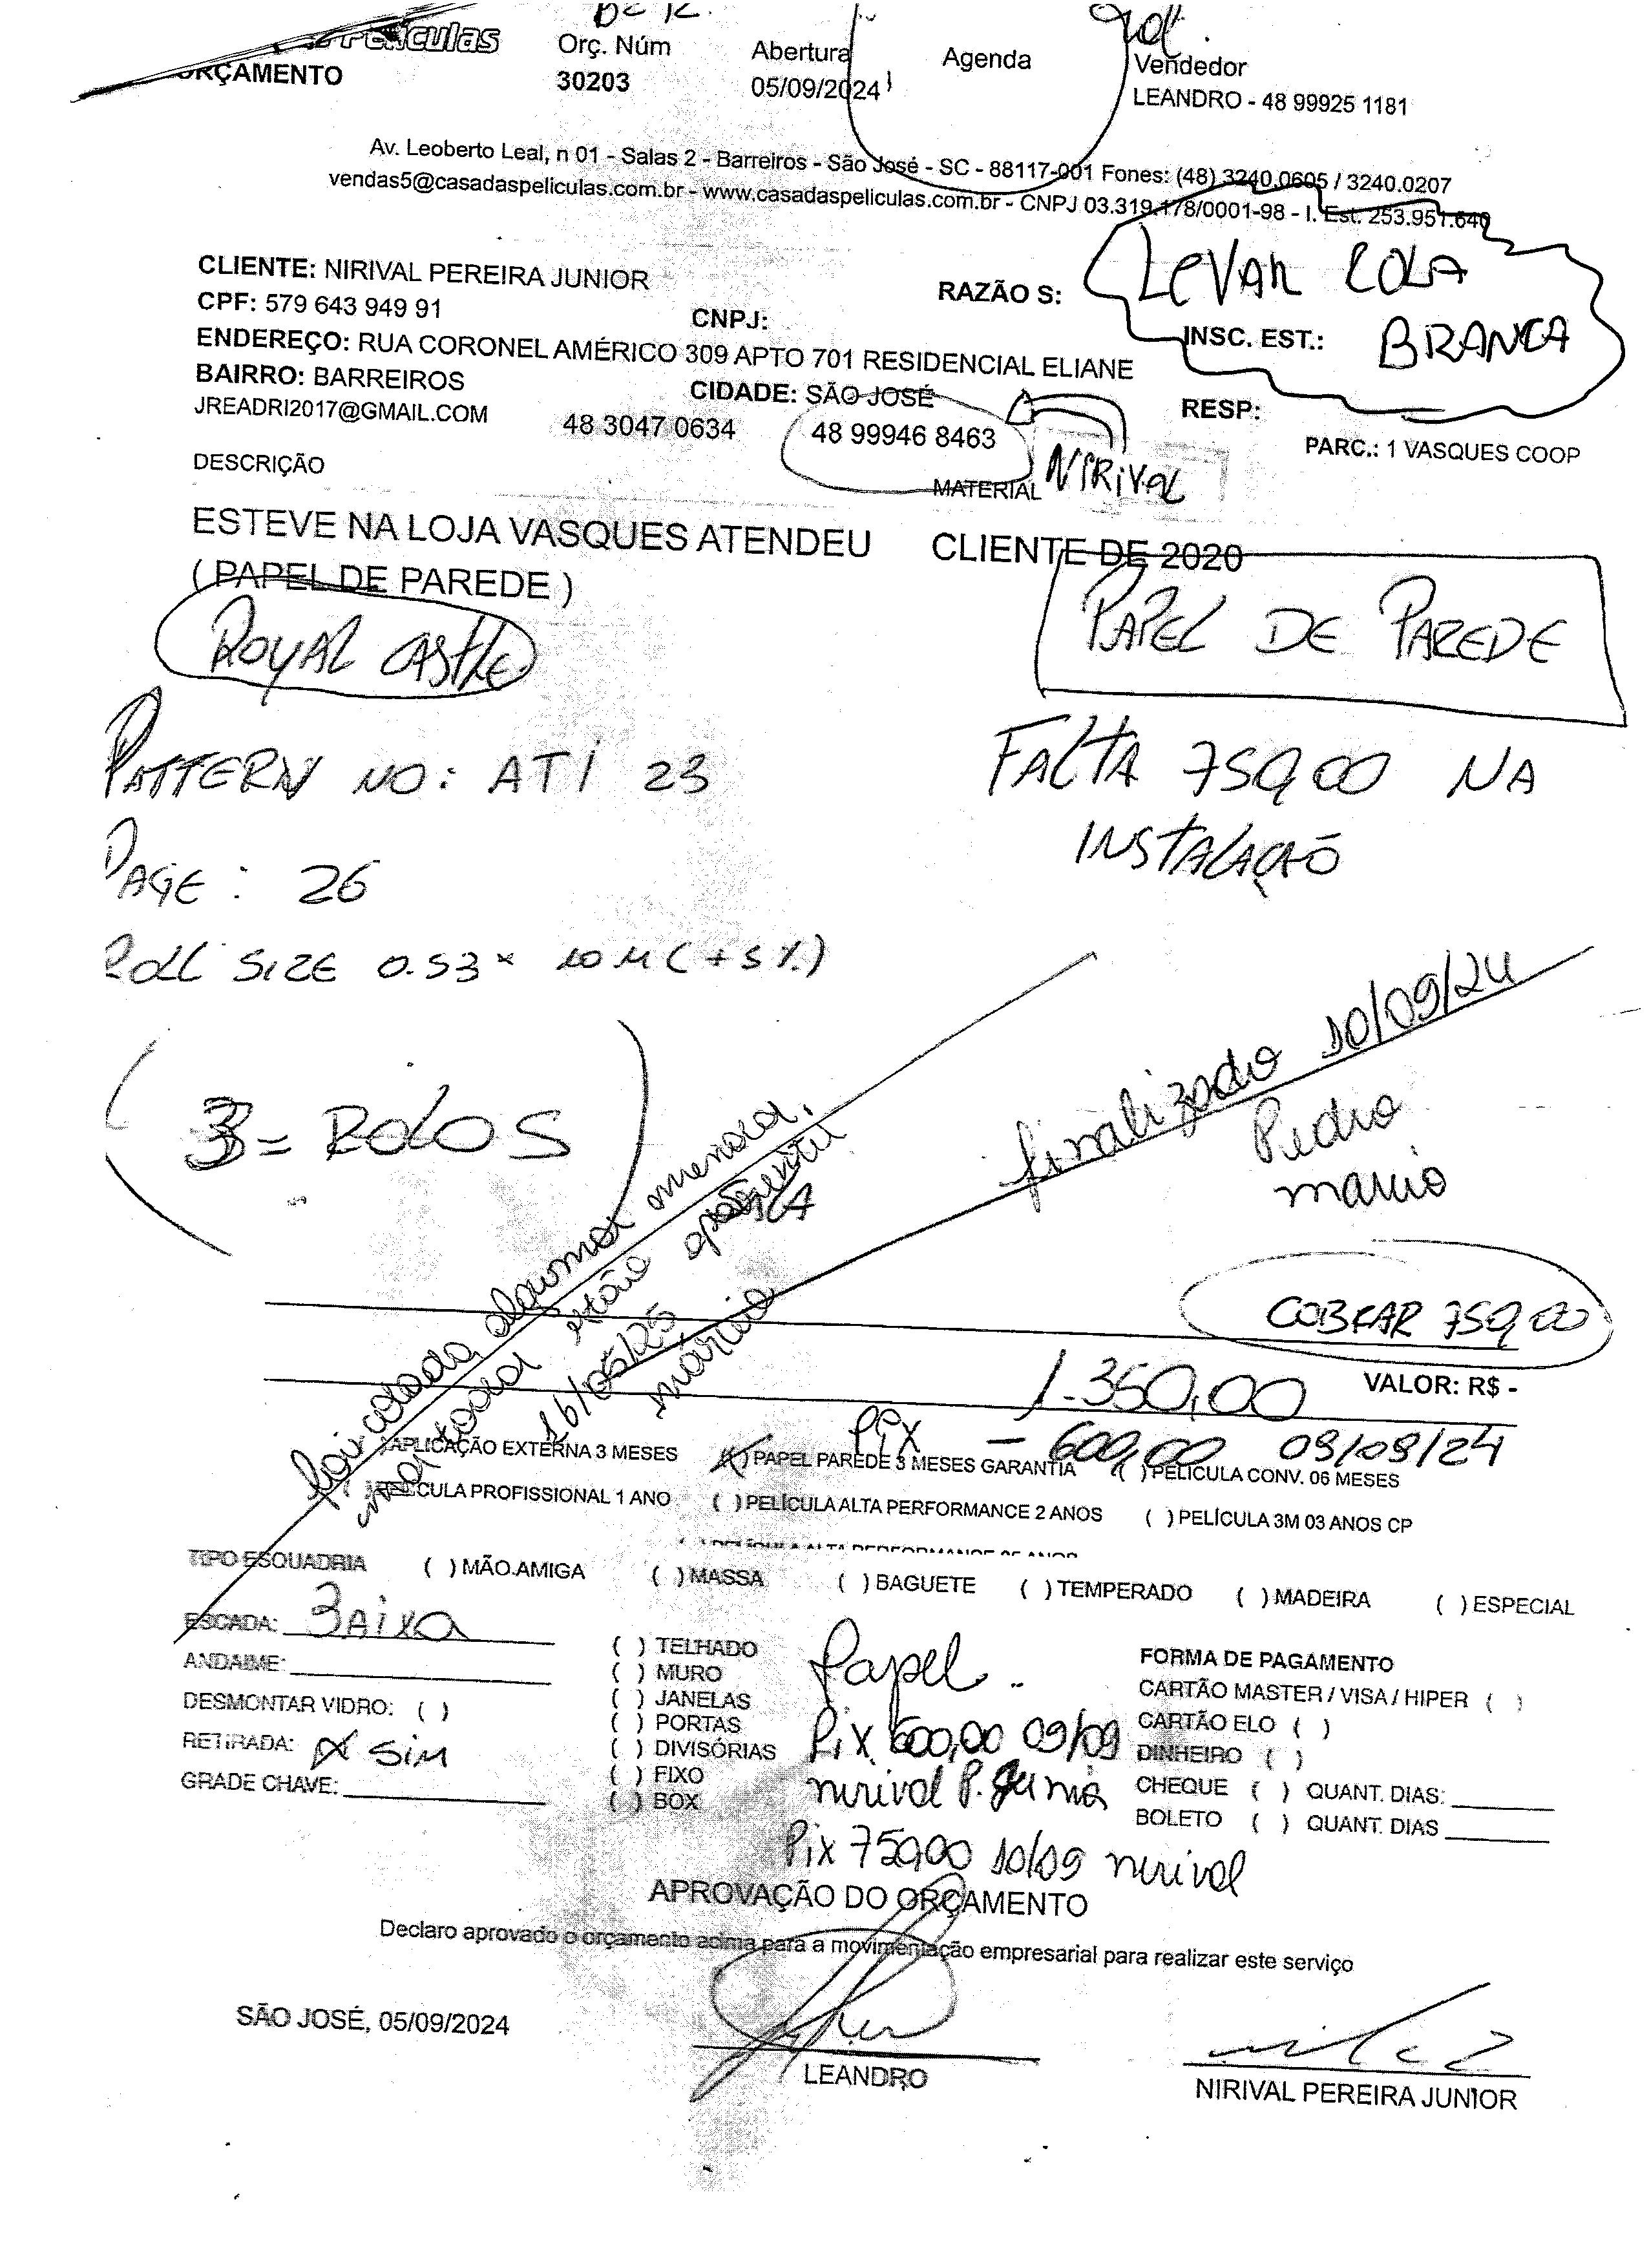 Películas
ORÇAMENTO
Orç. Núm
30203
Abertura
05/09/2024
Agenda
Vendedor
LEANDRO - 48 99925 1181
Av. Leoberto Leal, n 01 - Salas 2 - Barreiros - São José - SC - 88117-001 Fones: (48) 3240.0605 / 3240.0207
vendas5@casadaspeliculas.com.br - www.casadaspeliculas.com.br - CNPJ 03.319.178/0001-98 - I. Est. 253.951.640
LEVAR COLA
BRANCA
CLIENTE: NIRIVAL PEREIRA JUNIOR
RAZÃO S:
CPF: 579 643 949 91
CNPJ:
INSC. EST.:
ENDEREÇO: RUA CORONEL AMÉRICO 309 APTO 701 RESIDENCIAL ELIANE
BAIRRO: BARREIROS
CIDADE: SÃO JOSÉ
RESP:
JREADRI2017@GMAIL.COM
48 3047 0634
48 99946 8463
NIRIVAL
PARC.: 1 VASQUES COOP
DESCRIÇÃO
MATERIAL
ESTEVE NA LOJA VASQUES ATENDEU
CLIENTE DE 2020
( PAPEL DE PAREDE )
ROYAL CASTLE
PAPEL DE PAREDE
PATTERN NO: ATI 23
FALTA 750,00 NA
INSTALAÇÃO
PAGE: 26
ROLL SIZE 0.53 x 10 M (+5%)
3 = ROLOS
finalizado 10/09/24
Pedro
marcio
foi colada algumas menora,
estão
16/05/25
márcio
COBRAR 750,00
1.350,00
VALOR: R$ -
PIX - 600,00 09/09/24
APLICAÇÃO EXTERNA 3 MESES
(X) PAPEL PAREDE 3 MESES GARANTIA
( ) PELÍCULA CONV. 06 MESES
PELÍCULA PROFISSIONAL 1 ANO
( ) PELÍCULA ALTA PERFORMANCE 2 ANOS
( ) PELÍCULA 3M 03 ANOS CP
( ) PELÍCULA ALTA PERFORMANCE 05 ANOS
TIPO ESQUADRIA
( ) MÃO.AMIGA
( ) MASSA
( ) BAGUETE
( ) TEMPERADO
( ) MADEIRA
( ) ESPECIAL
ESCADA: BAIXA
ANDAIME:
DESMONTAR VIDRO: ( )
RETIRADA: (X) SIM
GRADE CHAVE:
( ) TELHADO
( ) MURO
( ) JANELAS
( ) PORTAS
( ) DIVISÓRIAS
( ) FIXO
( ) BOX
Papel
Pix 600,00 09/09
nirival P. Junior
Pix 750,00 10/09 nirival
FORMA DE PAGAMENTO
CARTÃO MASTER / VISA / HIPER ( )
CARTÃO ELO ( )
DINHEIRO ( )
CHEQUE ( ) QUANT. DIAS:
BOLETO ( ) QUANT. DIAS
APROVAÇÃO DO ORÇAMENTO
Declaro aprovado o orçamento acima para a movimentação empresarial para realizar este serviço
SÃO JOSÉ, 05/09/2024
LEANDRO
NIRIVAL PEREIRA JUNIOR